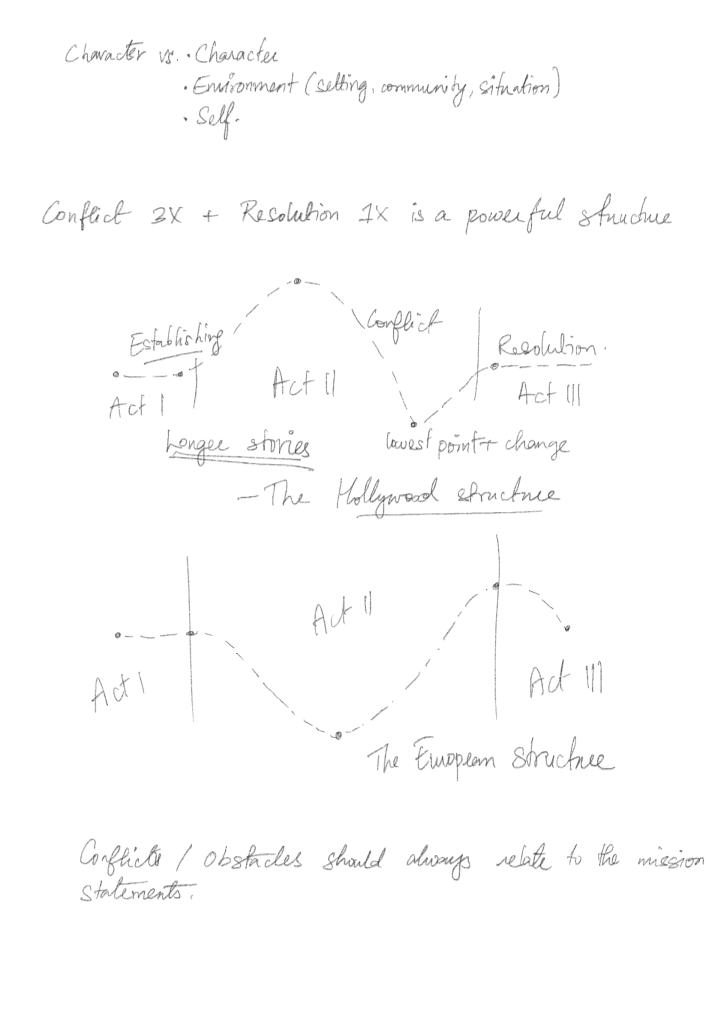 Character vs. • Character
• Environment (setting, community, situation)
• Self.
Conflict 3X + Resolution 1X is a powerful structure
Establishing
Conflict
Resolution.
Act I
Act II
Act III
Longer stories
lowest point + change
– The Hollywood structure
Act I
Act II
Act III
The European structure
Conflicts / obstacles should always relate to the mission
statements.